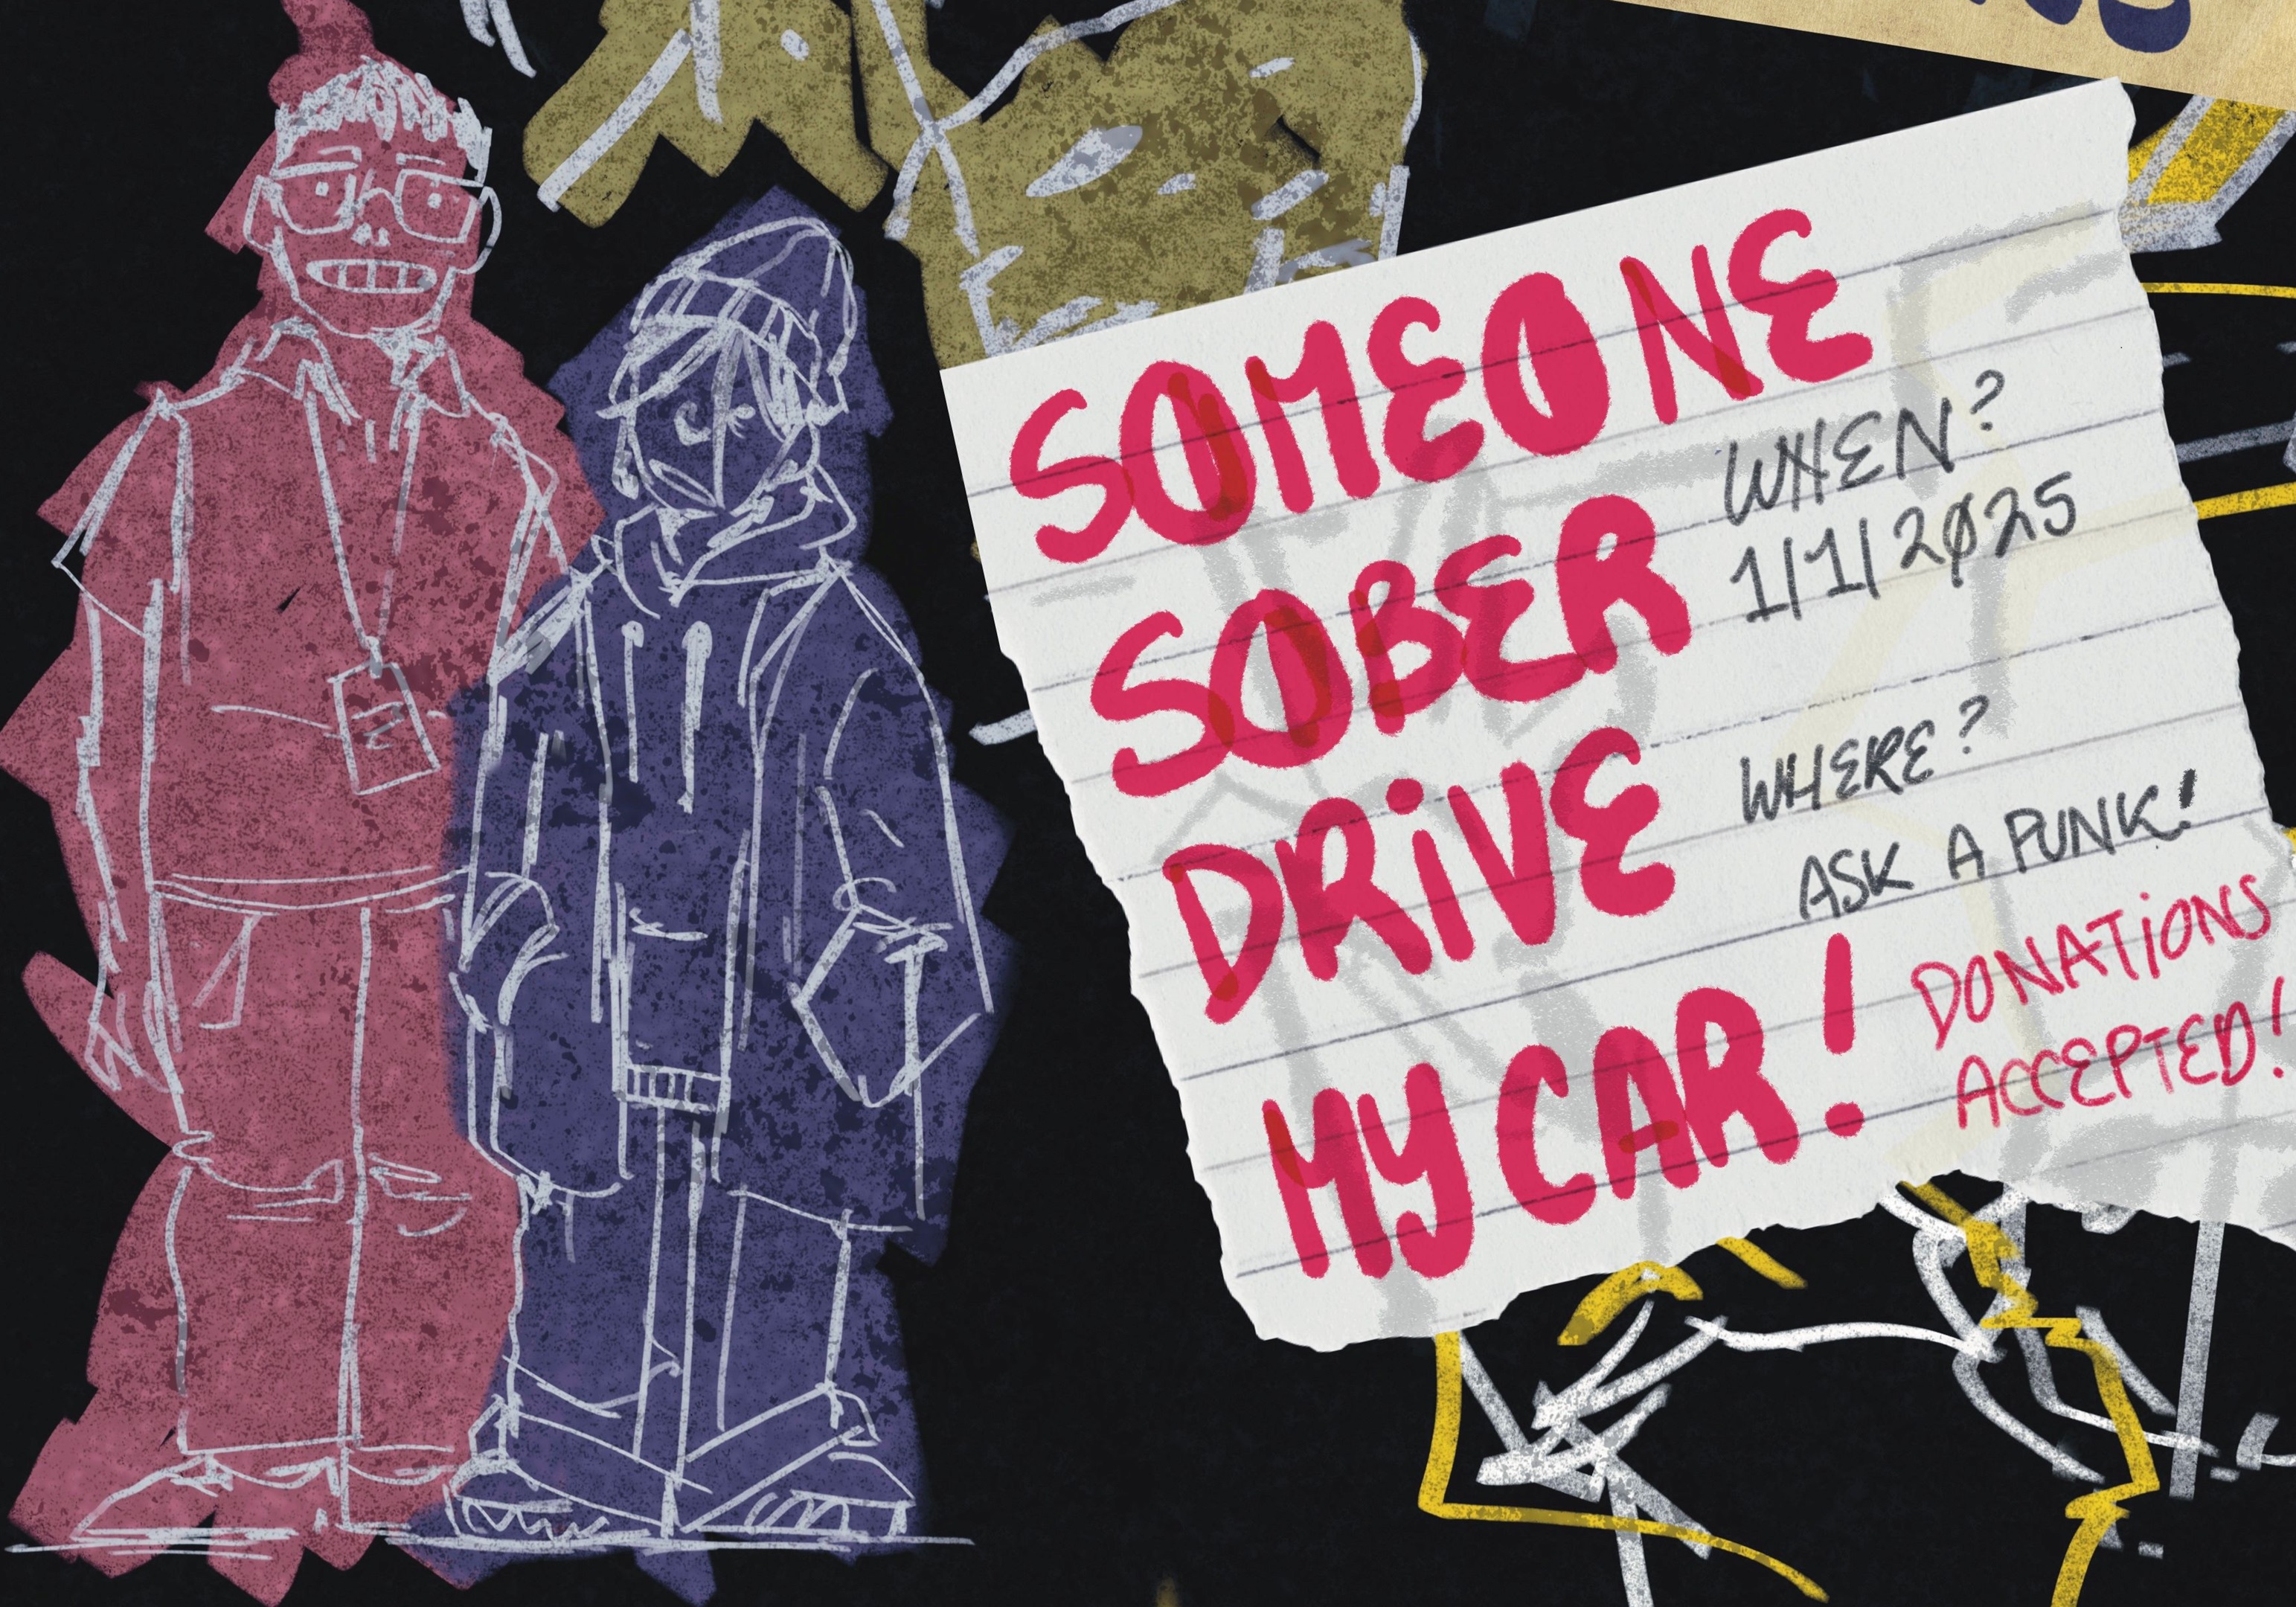 SOMEONE
SOBER
DRIVE
MY CAR!
WHEN?
1/1/2025
WHERE?
ASK A PUNK!
DONATIONS
ACCEPTED!